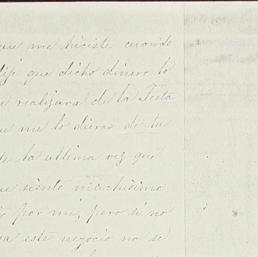 que me hiciste cuando
dijé que dicho dinero lo
realizara de la Testa
que me lo dieras de tu
de la ultima vez que
que siento muchisimo
por mi, pero si no
este negocio no se